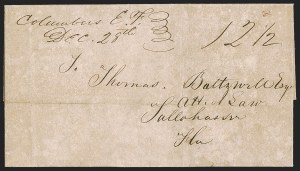 Columbus E.F.
Dec. 28th
12 1/2
To Thomas Baltzell Esq
Att. at Law
Tallahassee
Fla